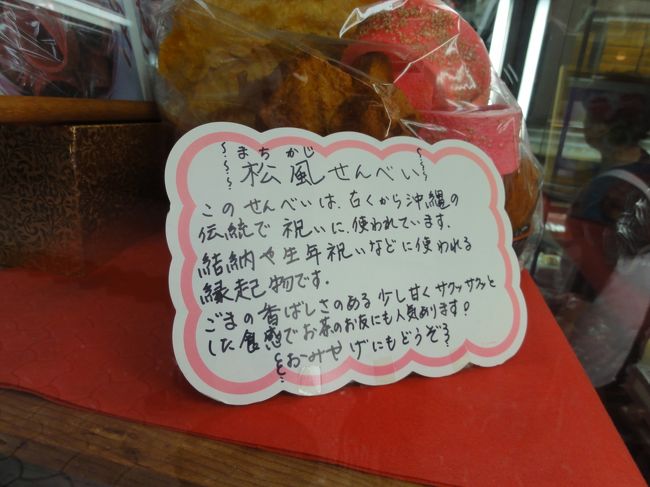 まちかじ
松風せんべい
このせんべいは、古くから沖縄の
伝統で祝いに、使われています。
結納や生年祝いなどに使われる
縁起物です。
ごまの香ばしさのある少し甘くサクッサクッと
した食感でお茶のお友にも人気あります!
おみやげにもどうぞ